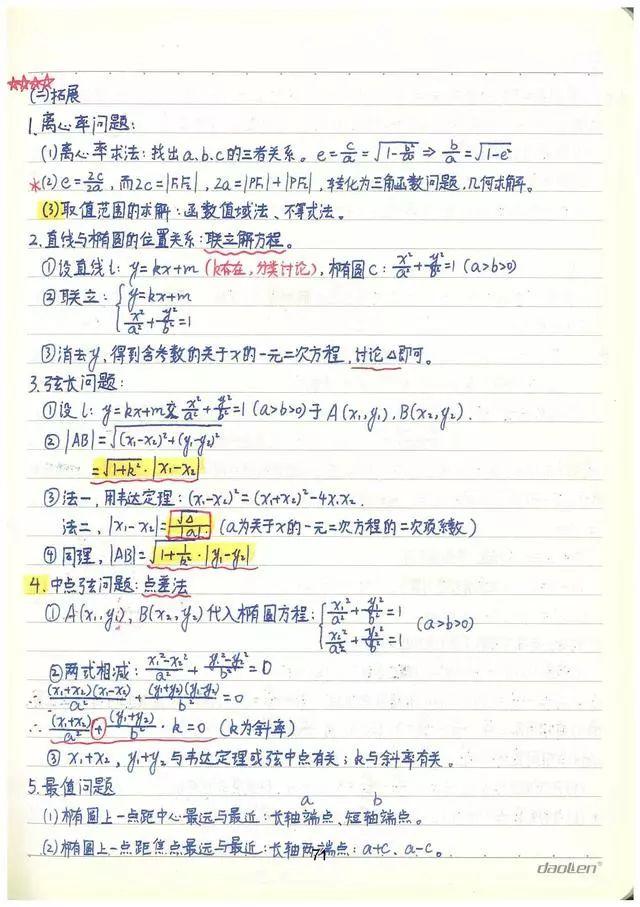 ☆☆☆☆
(二)拓展
1.离心率问题:
(1)离心率求法:找出a.b.c的三者关系。e=c/a=√(1-b²/a²)⇒b/a=√(1-e²)
*(2)e=2c/2a,而2c=|F₁F₂|,2a=|PF₁|+|PF₂|,转化为三角函数问题,几何求解。
(3)取值范围的求解:函数值域法、不等式法。
2.直线与椭圆的位置关系:联立解方程。
①设直线l:y=kx+m(k存在,分类讨论),椭圆C:x²/a²+y²/b²=1(a>b>0)
②联立:{y=kx+m
x²/a²+y²/b²=1
③消去y,得到含参数的关于x的一元二次方程,讨论△即可。
3.弦长问题:
①设l:y=kx+m交x²/a²+y²/b²=1(a>b>0)于A(x₁,y₁),B(x₂,y₂).
②|AB|=√((x₁-x₂)²+(y₁-y₂)²)
=√(1+k²)·|x₁-x₂|
③法一,用韦达定理:(x₁-x₂)²=(x₁+x₂)²-4x₁x₂.
法二,|x₁-x₂|=√△/|a|(a为关于x的一元二次方程的二次项系数)
④同理,|AB|=√(1+1/k²)·|y₁-y₂|
4.中点弦问题:点差法
①A(x₁,y₁),B(x₂,y₂)代入椭圆方程:{x₁²/a²+y₁²/b²=1
x₂²/a²+y₂²/b²=1 (a>b>0)
②两式相减:(x₁²-x₂²)/a²+(y₁²-y₂²)/b²=0
∴(x₁+x₂)(x₁-x₂)/a²+(y₁+y₂)(y₁-y₂)/b²=0
∴(x₁+x₂)/a²+(y₁+y₂)/b²·k=0(k为斜率)
③x₁+x₂,y₁+y₂与韦达定理或弦中点有关;k与斜率有关。
5.最值问题
a b
(1)椭圆上一点距中心最远与最近:长轴端点、短轴端点。
(2)椭圆上一点距焦点最远与最近:长轴两端点:a+c、a-c。
71
daolien®